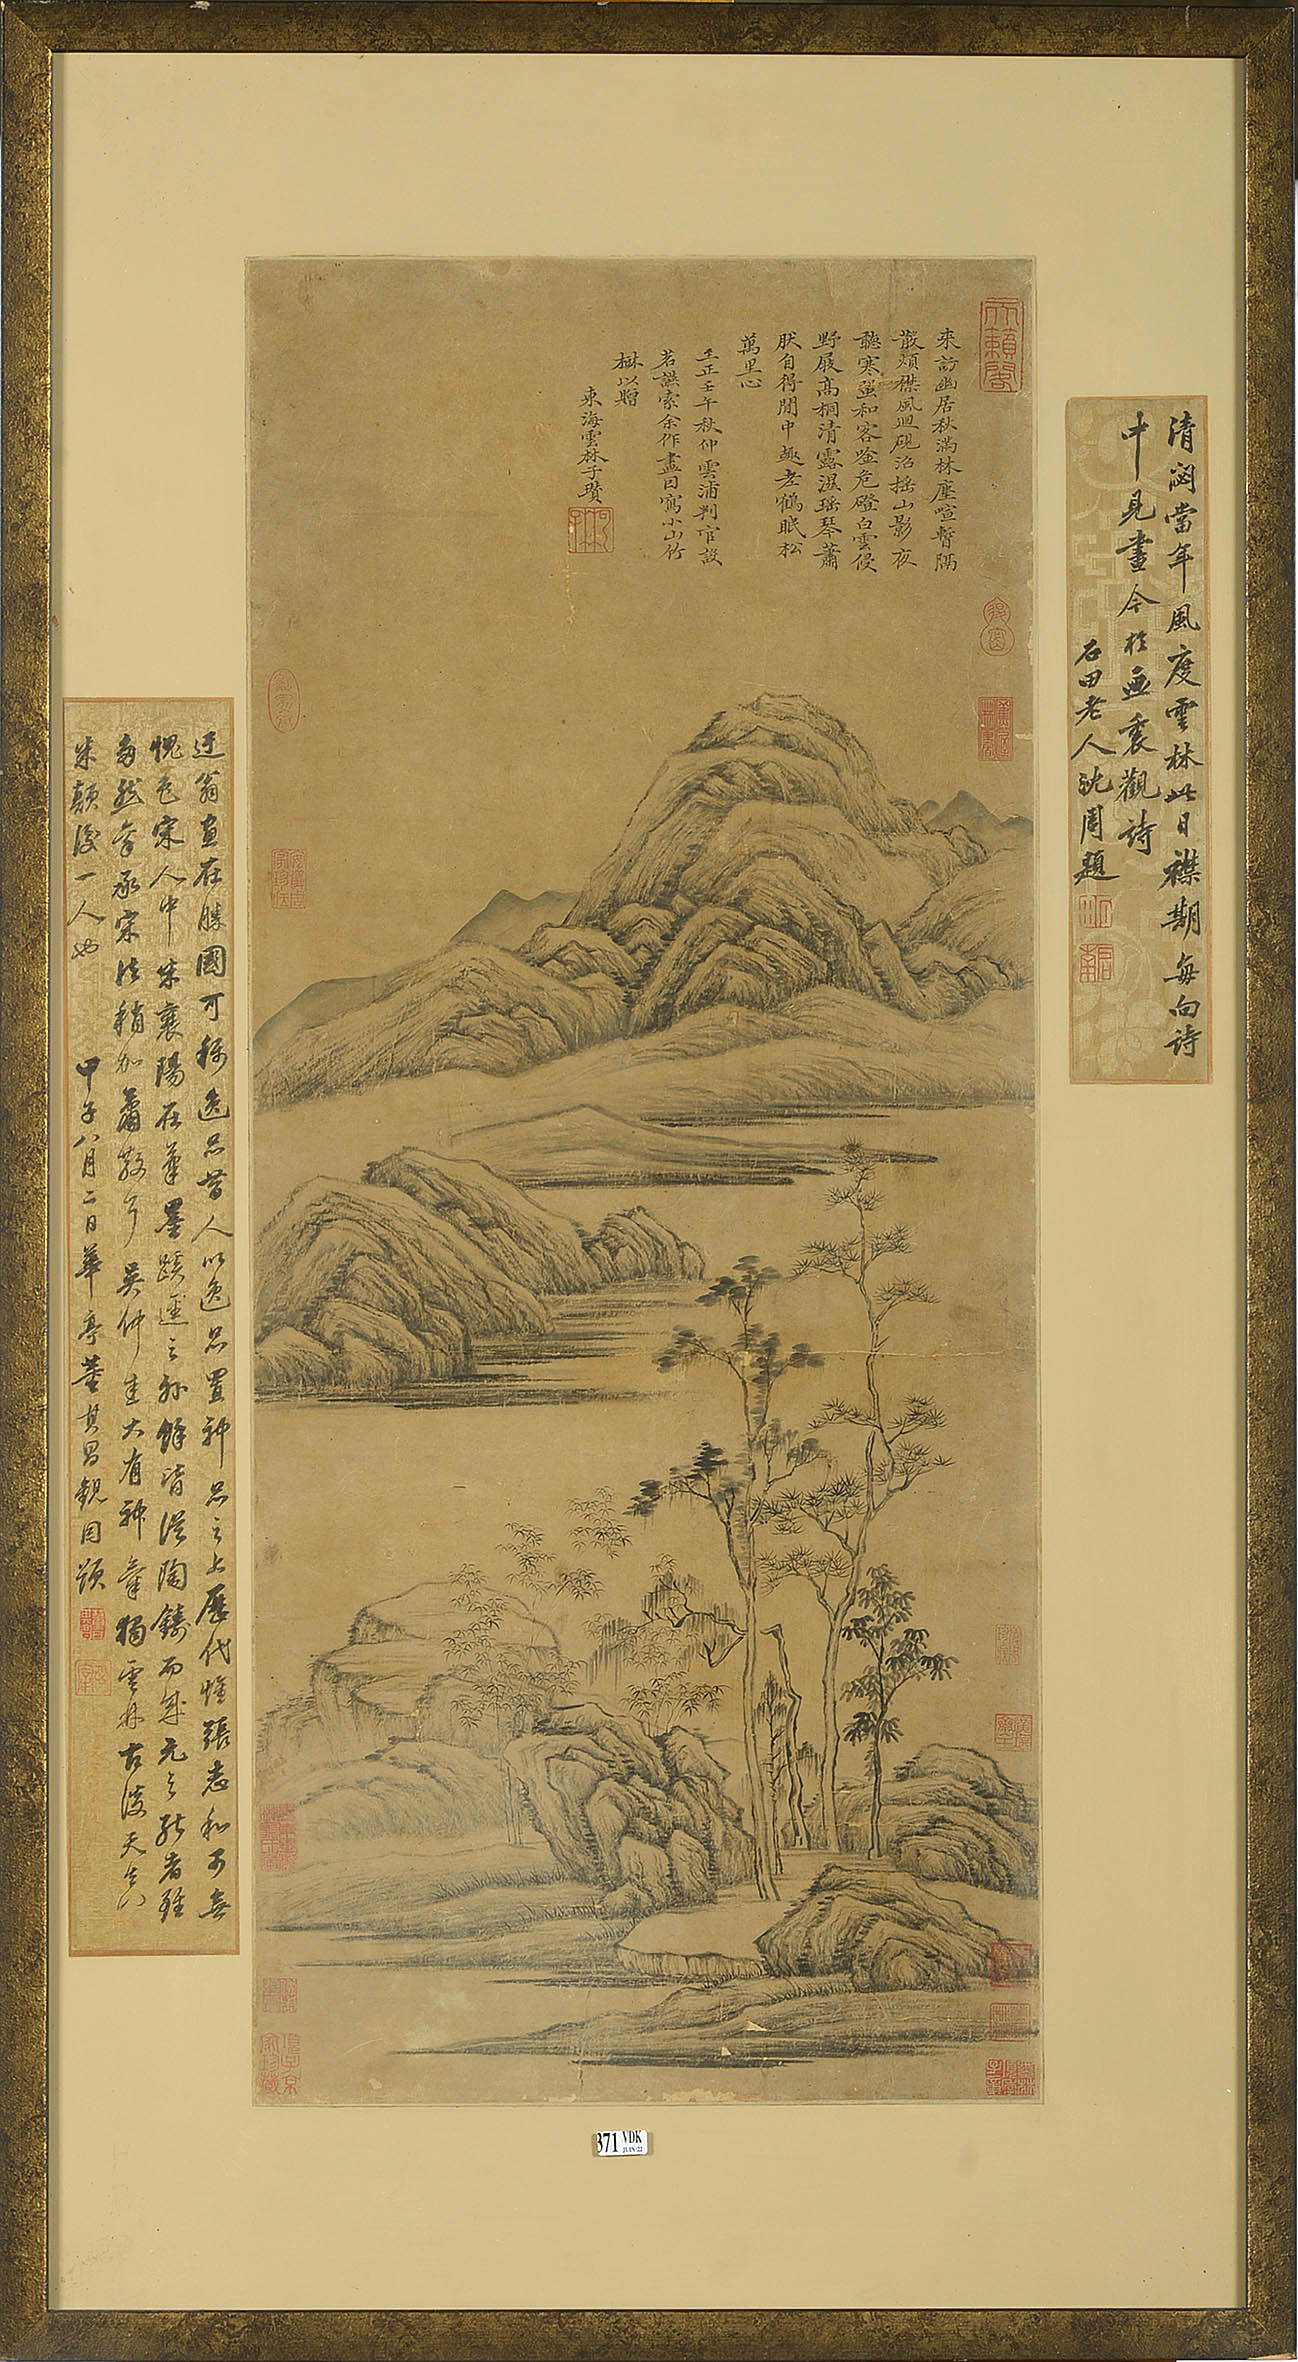 清閟當年風度雲林此日襟期每向詩
中見畫今於畫裏觀詩
石田老人沈周題
天籟閣
來訪幽居秋滿林塵喧暫隔
散煩襟風迴硯沼搖山影夜
聽寒蛩和客吟危磴白雲侵
野屐高桐清露濕瑤琴蕭
然自得閒中趣老鶴眠松
萬里心
至正壬午秋仲雲浦判官設
茗讌索余作畫因寫小山竹
樹以贈
東海雲林子瓚
迂翁畫在勝國可稱逸品昔人以逸品置神品之上歷代惟張志和可無
愧色宋人中米襄陽在筆墨蹊逕之外餘皆從陶鑄而來元之能者雖
多然率承宋法稍加蕭散耳吳仲圭大有神氣獨雲林古淡天真
米顛後一人也
甲子八月二日華亭董其昌觀因題
項子京
家珍藏
371 VDK
JUIN 22